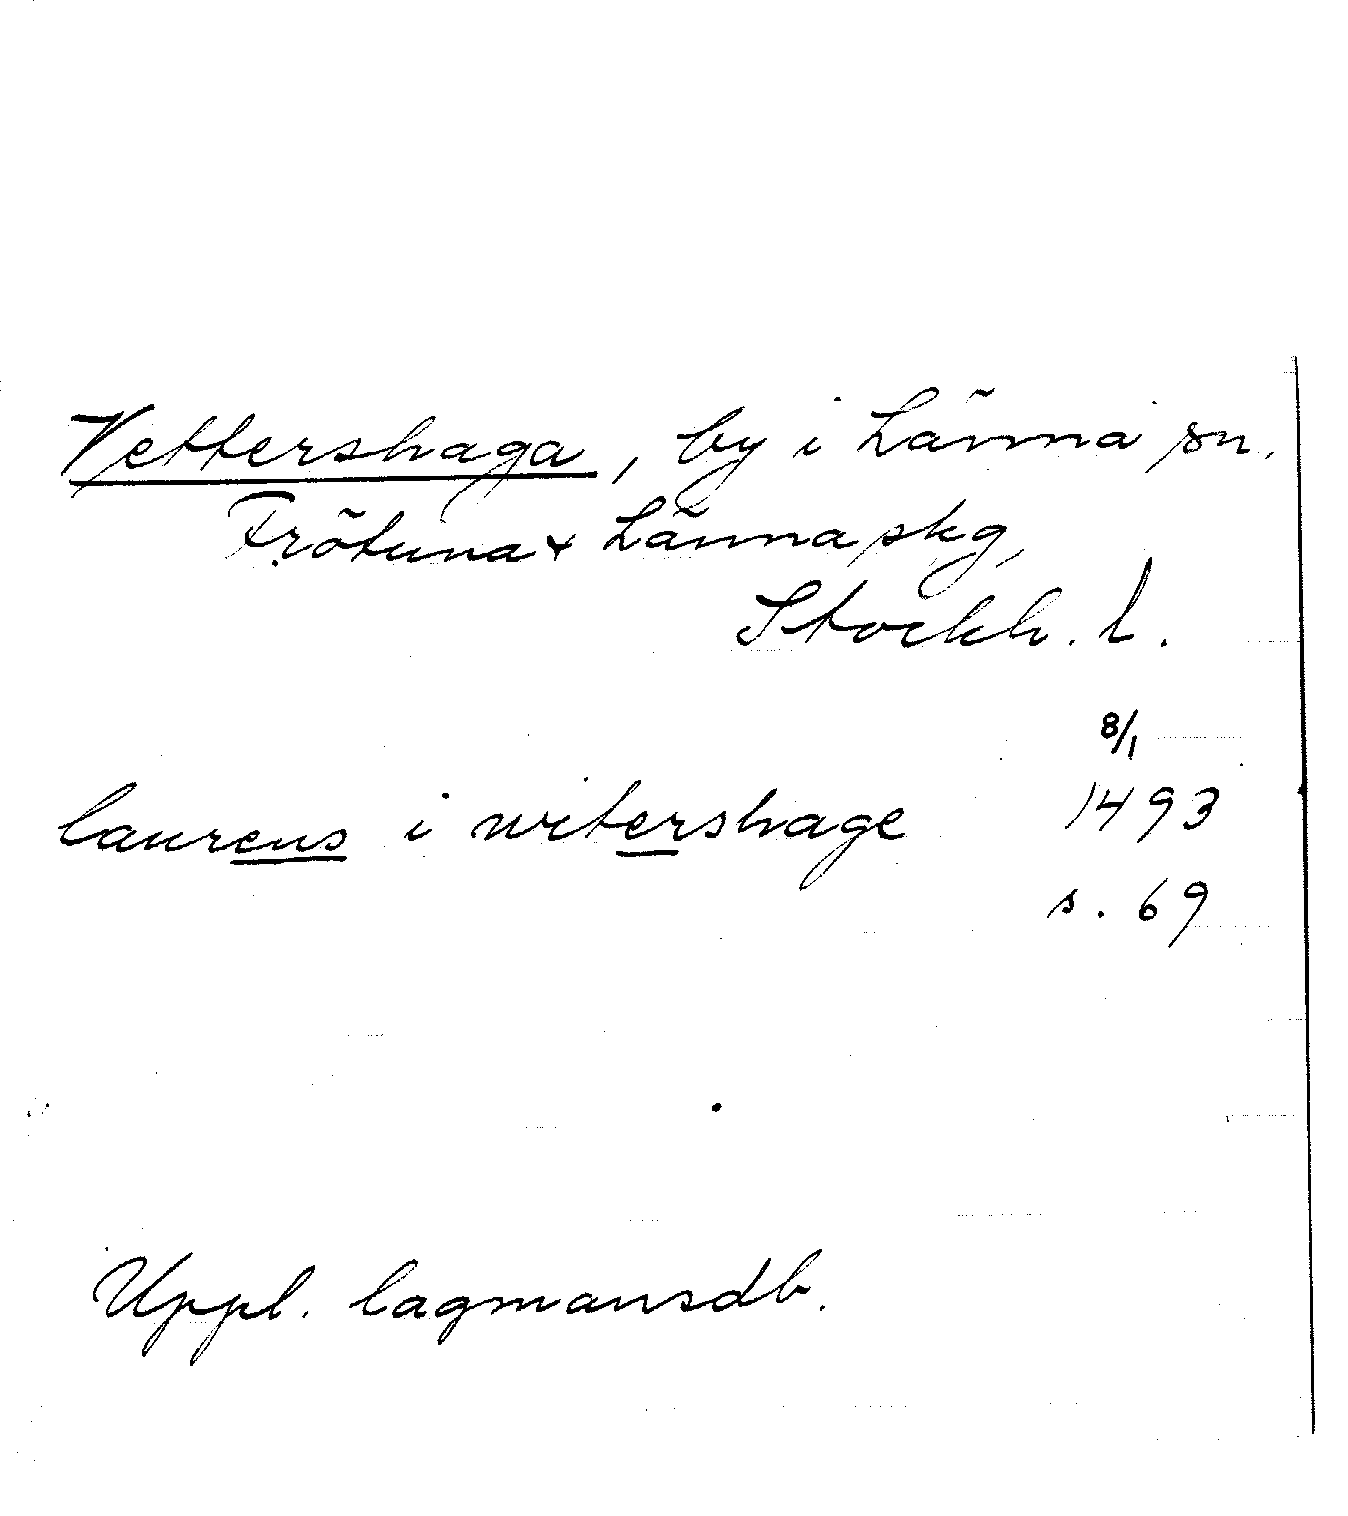 Vettershaga, by i Länna sn.
Frötuna & Länna skg,
Stockh. l.
8/1
laurens i witershage 1493
s. 69
Uppl. lagmansdb.